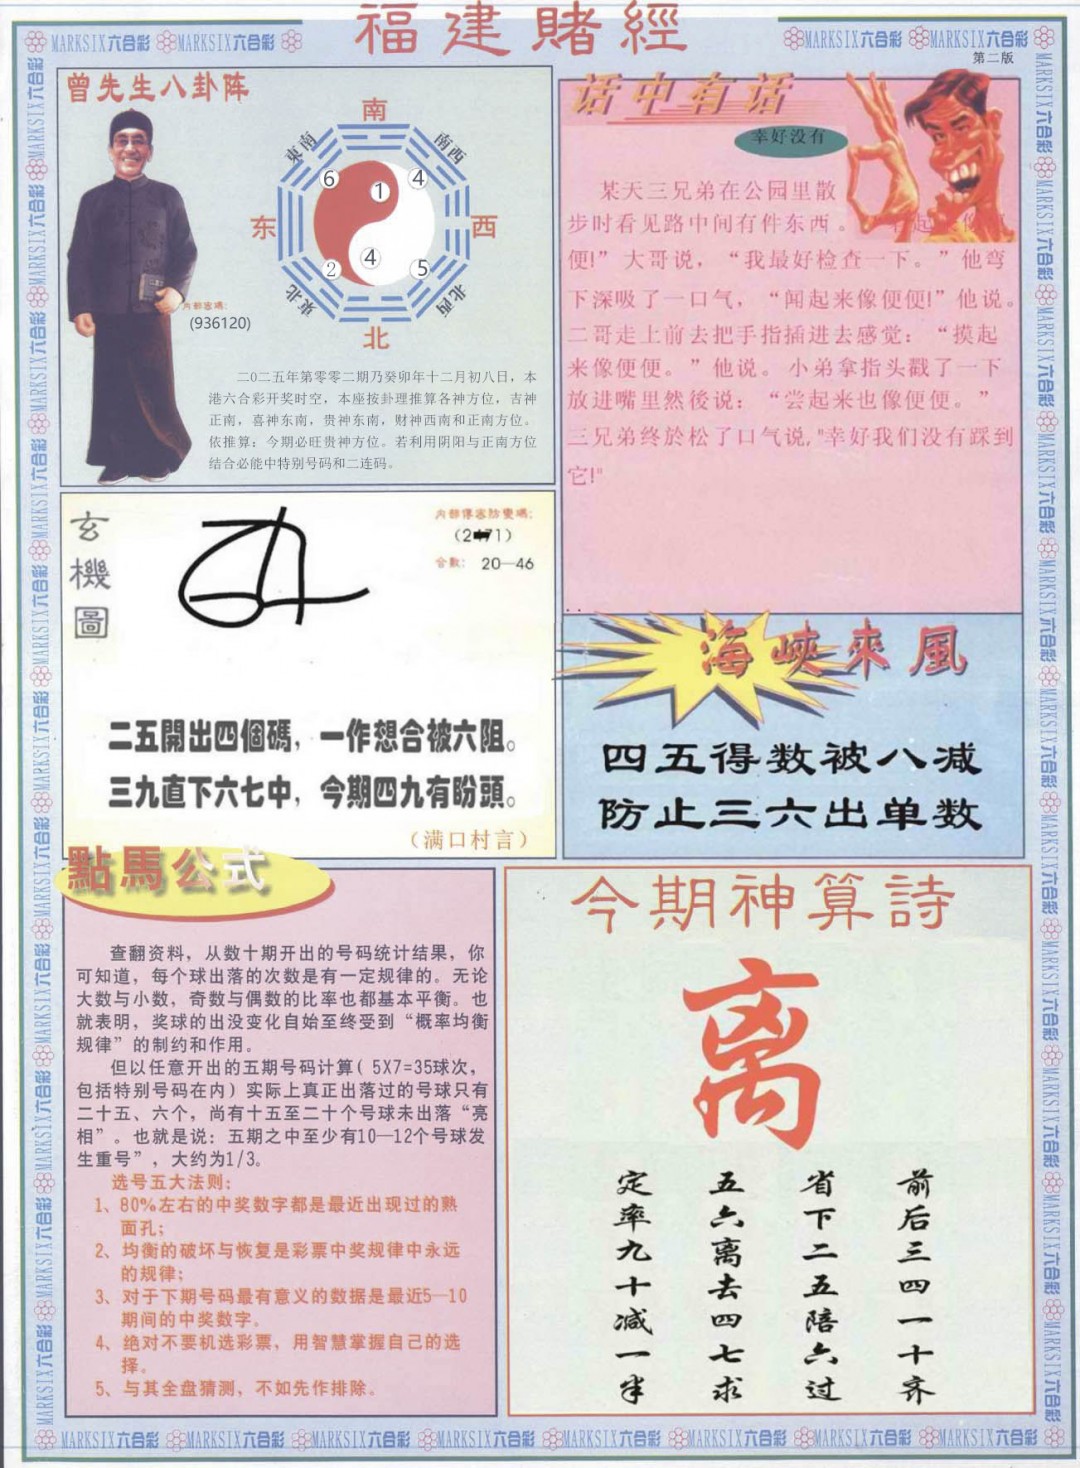 福建賭經
MARKSIX六合彩 MARKSIX六合彩
MARKSIX六合彩 MARKSIX六合彩
第二版
曾先生八卦阵
南
東南
南西
6
1
4
东
西
2
4
5
東北
北西
北
内部密碼:
(936120)
二0二五年第零零二期乃癸卯年十二月初八日，本
港六合彩开奖时空，本座按卦理推算各神方位，吉神
正南，喜神东南，贵神东南，财神西南和正南方位。
依推算：今期必旺贵神方位。若利用阴阳与正南方位
结合必能中特别号码和二连码。
话中有话
幸好没有
某天三兄弟在公园里散
步时看见路中间有件东西。
便!”大哥说，“我最好检查一下。”他弯
下深吸了一口气，“闻起来像便便!”他说。
二哥走上前去把手指插进去感觉：“摸起
来像便便。”他说。小弟拿指头戳了一下
放进嘴里然後说：“尝起来也像便便。”
三兄弟终於松了口气说,"幸好我们没有踩到
它!"
玄機圖
内部傳密防變碼:
合數: 20—46
二五開出四個碼，一作想合被六阻。
三九直下六七中，今期四九有盼頭。
（满口村言）
海峽來風
四五得数被八减
防止三六出单数
點馬公式
查翻资料，从数十期开出的号码统计结果，你
可知道，每个球出落的次数是有一定规律的。无论
大数与小数，奇数与偶数的比率也都基本平衡。也
就表明，奖球的出没变化自始至终受到“概率均衡
规律”的制约和作用。
但以任意开出的五期号码计算( 5X7=35球次，
包括特别号码在内）实际上真正出落过的号球只有
二十五、六个，尚有十五至二十个号球未出落“亮
相”。也就是说：五期之中至少有10—12个号球发
生重号”，大约为1/3。
选号五大法则:
1、80%左右的中奖数字都是最近出现过的熟
面孔;
2、均衡的破坏与恢复是彩票中奖规律中永远
的规律;
3、对于下期号码最有意义的数据是最近5—10
期间的中奖数字。
4、绝对不要机选彩票，用智慧掌握自己的选
择。
5、与其全盘猜测，不如先作排除。
今期神算詩
离
前后三四一十齐
省下二五陪六过
五六离去四七求
定率九十减一半
MARKSIX六合彩 MARKSIX六合彩 MARKSIX六合彩 MARKSIX六合彩 MARKSIX六合彩 MARKSIX六合彩 MARKSIX六合彩 MARKSIX六合彩